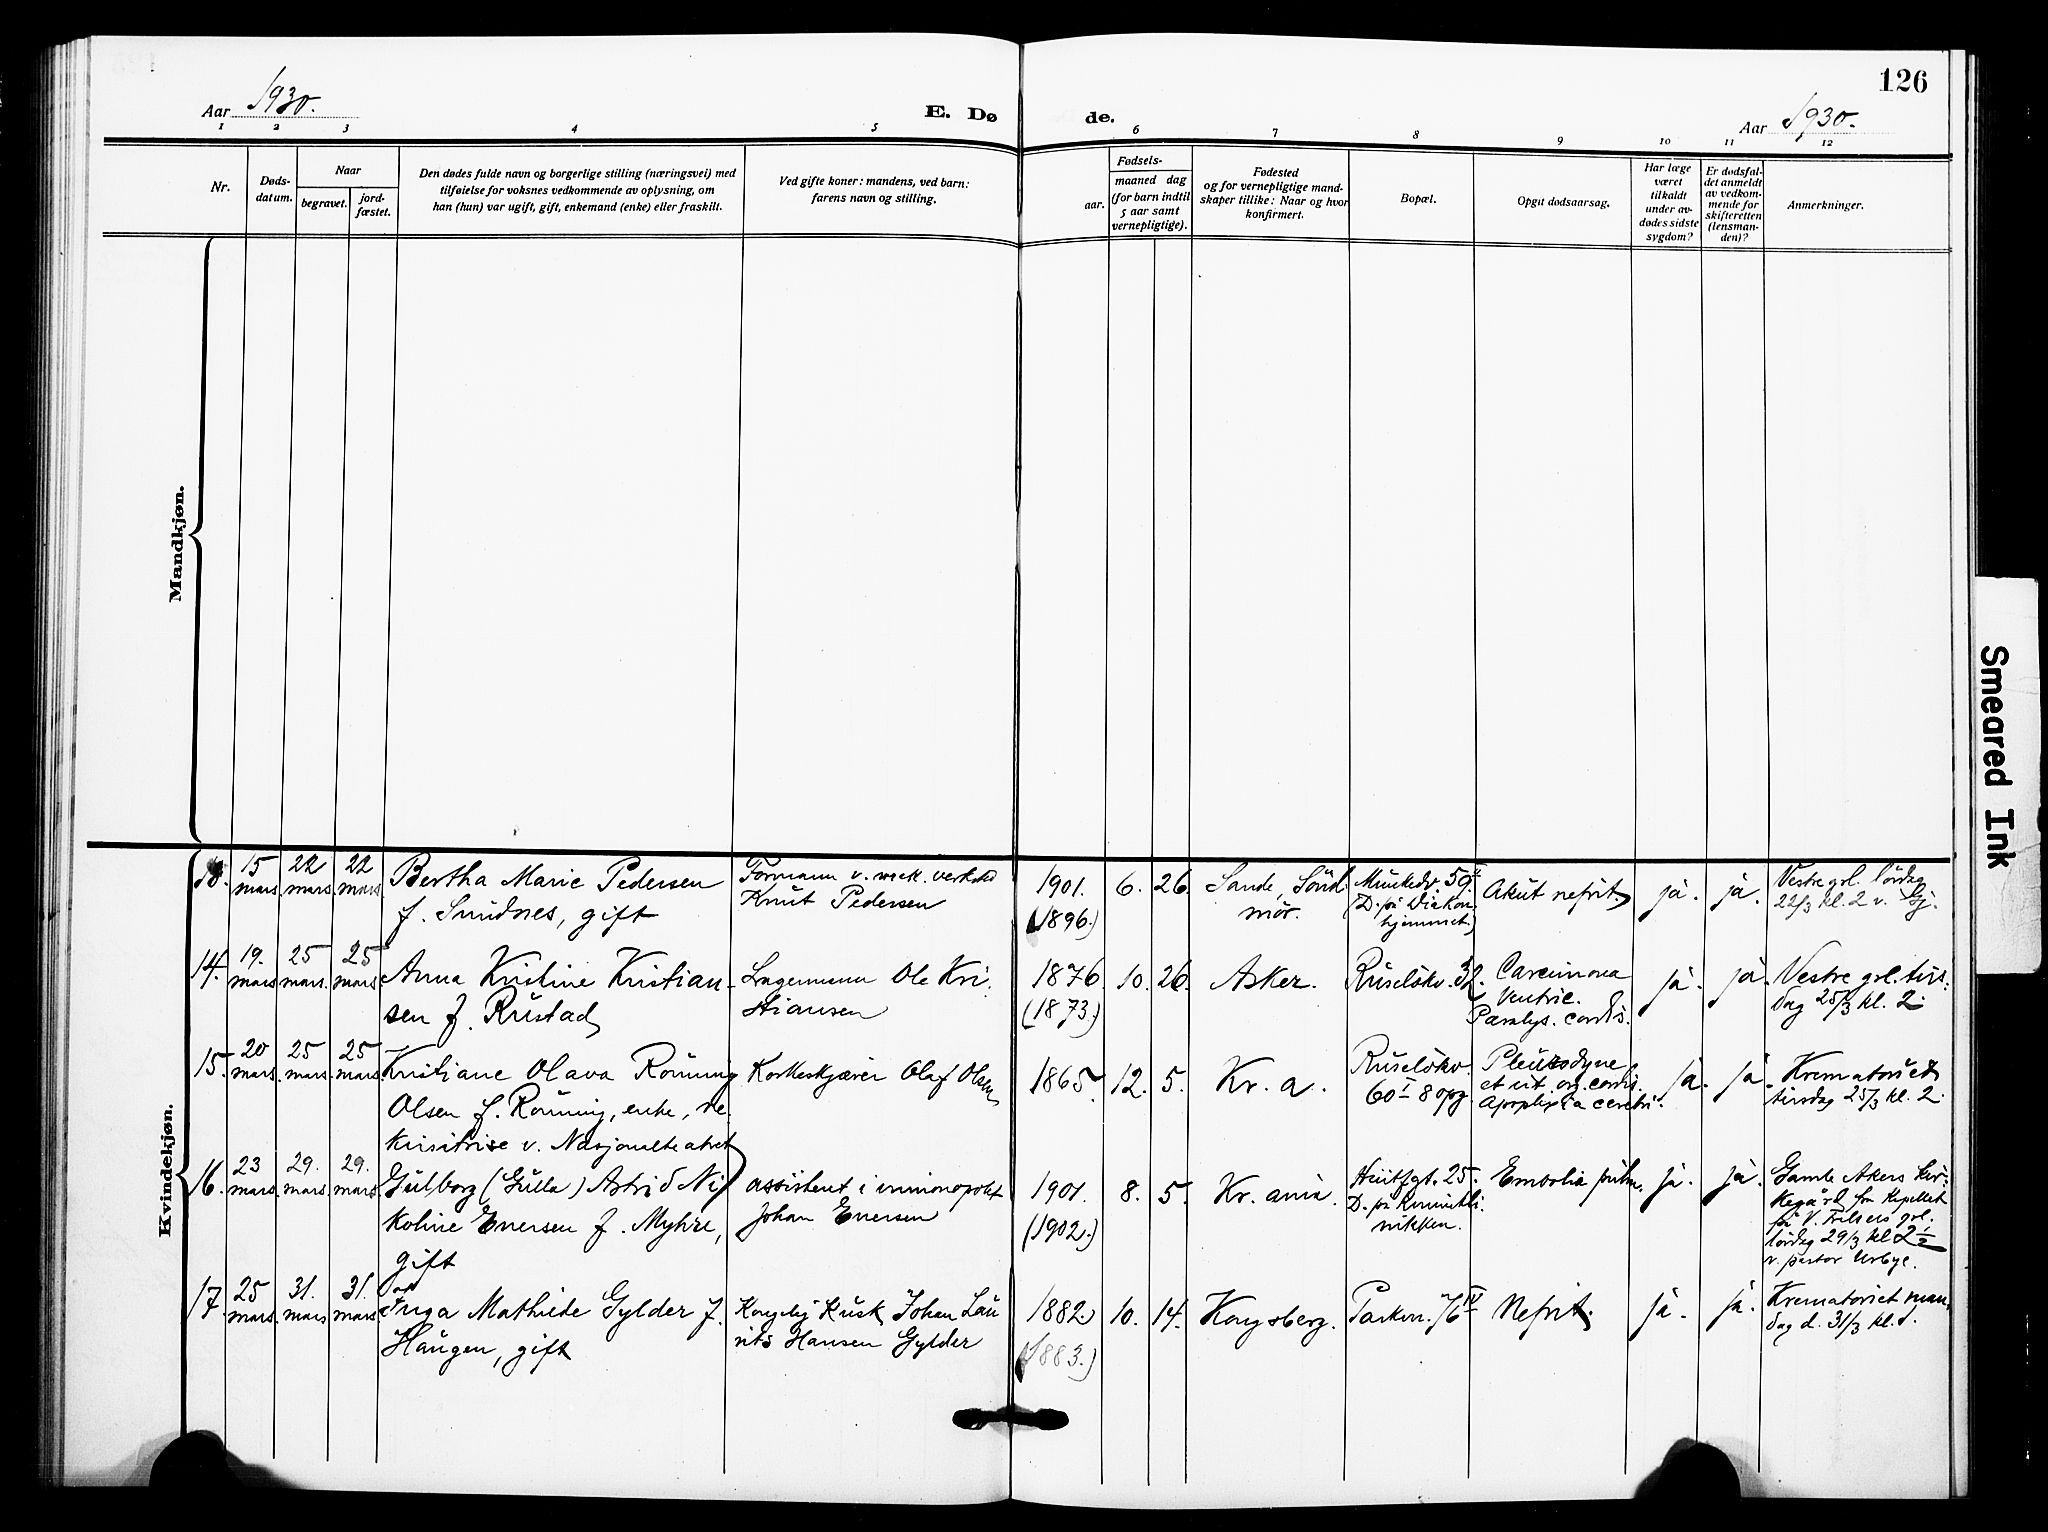 126
Aar 1930.
E. Dø de.
Aar 1930.
1 2 3 4 5 6 7 8 9 10 11 12
Nr.
Døds-
datum.
Naar
begravet.
jord-
fæstet.
Den dødes fulde navn og borgerlige stilling (næringsvei) med
tilføielse for voksnes vedkommende av oplysning, om
han (hun) var ugift, gift, enkemand (enke) eller fraskilt.
Ved gifte koner: mandens, ved barn:
farens navn og stilling.
aar.
Fødsels-
maaned dag
(for barn indtil
5 aar samt
vernepligtige).
Fødested
og for vernepligtige mand-
skaper tillike: Naar og hvor
konfirmert.
Bopæl.
Opgit dødsaarsag.
Har læge
været
tilkaldt
under av-
dødes sidste
sygdom?
Er dødsfal-
det anmeldt
av vedkom-
mende for
skifteretten
(lensman-
den)?
Anmerkninger.
Mandkjøn.
Kvindekjøn.
15 mars 22 mars 22 mars
Bertha Marie Pedersen
f. Sundnes, gift
Formann v. mek. verksted
Knut Pedersen
1901. (1896.)
6. 26.
Sande, Sönd
mör.
Munkedv. 59
(D. på Diakon
hjemmet.)
Akut nefrit.
ja. ja.
Vestre grl. lördag
22/3 kl. 2 v.
14. 19. mars 25 mars. 25 mars.
Anna Kristine Kristian-
sen f. Rustad
Lagermann Ole Kri
stiansen
1876 (1873.)
10. 26.
Asker.
Ruselökv. 32.
Carcinoma
Ventric.
Paralys. cordis.
ja. ja.
Vestre grl. tirs-
dag 25/3 kl. 2.
15. 20 mars. 25 mars. 25 mars.
Kristiane Olava Rönning
Olsen f. Rönning, enke, re-
kvisitrise v. Nasjonalteatret
Korkeskjærer Olaf Olsen
1865. 12. 5.
Kr. a.
Ruselökv.
60 I 8 opg.
Pleurodyne
et vit. org. cordis.
Apoplexia cerebri.
ja. ja.
Krematoriet
tirsdag 25/3 kl. 2.
16. 23 mars. 29. mars. 29. mars.
Gulborg (Gulla) Astrid Ni
koline Enersen f. Myhre,
gift
assistent i vinmonopolet
Johan Enersen
1901. (1902.)
8. 5.
Kr. ania.
Huitfgt. 25.
D. på Kvinnekli
nikken.
Embolia pulm.
ja. ja.
Gamle Akers kir-
kegård fra kapellet
på V. Frelsers grl.
lördag 29/3 kl. 2 1/2
v. pastor Urbye.
17. 25 mars. 31. mars 31. mars
Inga Mathilde Gylder f.
Haugen, gift
Kongelig kusk Johan Lau
rits Hansen Gylder
1882 (1883.)
10. 14.
Kongsberg.
Parkvn. 76 IV
Nefrit.
ja. ja.
Krematoriet man-
dag d. 31/3 kl. 1.
Smeared Ink